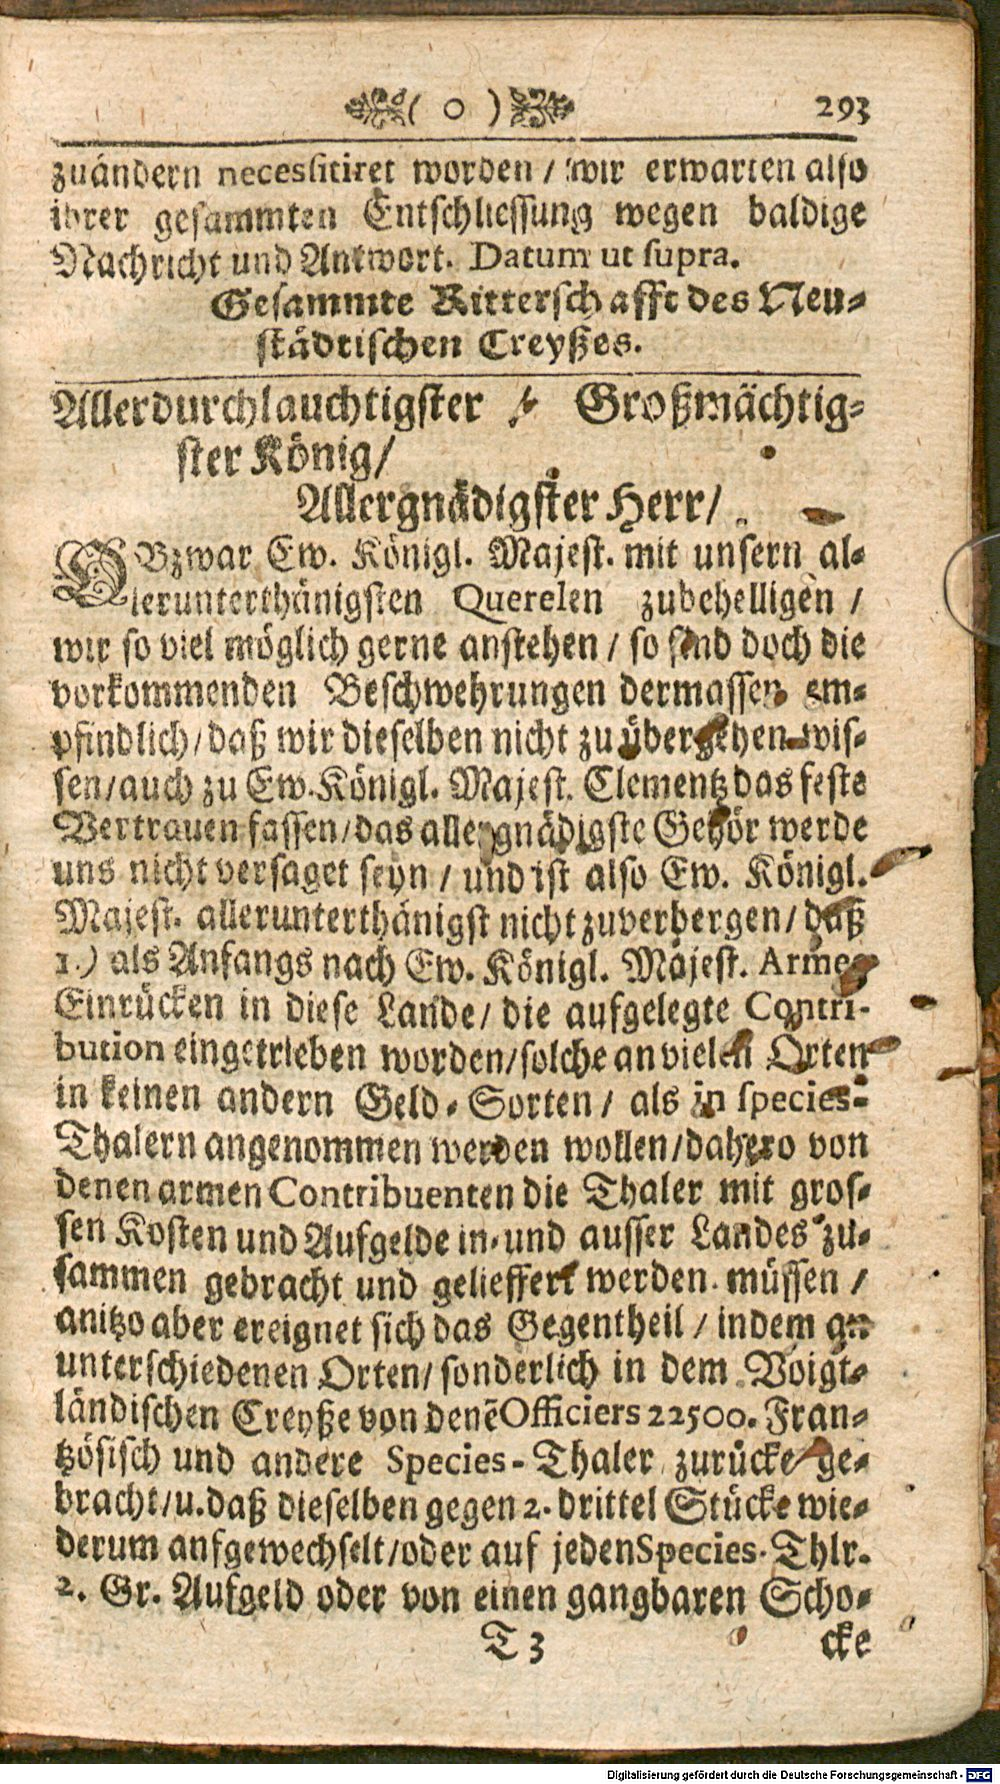 ( o ) 293
zuändern necessitiret worden / wir erwarten also
ihrer gesammten Entschliessung wegen baldige
Nachricht und Antwort. Datum ut supra.
Gesammte Ritterschafft des Neu-
städtischen Creyßes.
Allerdurchlauchtigster / Großmächtig-
ster König/
Allergnädigster Herr/
OBzwar Ew. Königl. Majest. mit unsern al-
lerunterthänigsten Querelen zubehelligen /
wir so viel möglich gerne anstehen / so sind doch die
vorkommenden Beschwehrungen dermassen em-
pfindlich/daß wir dieselben nicht zu übergehen wis-
sen/auch zu Ew. Königl. Majest. Clementz das feste
Vertrauen fassen/das allergnädigste Gehör werde
uns nicht versaget seyn / und ist also Ew. Königl.
Majest. allerunterthänigst nicht zuverbergen/ daß
1.) als Anfangs nach Ew. Königl. Majest. Armee
Einrücken in diese Lande/ die aufgelegte Contri-
bution eingetrieben worden/solche an vielen Orten
in keinen andern Geld-Sorten / als in species-
Thalern angenommen werden wollen/dahero von
denen armen Contribuenten die Thaler mit gros-
sen Kosten und Aufgelde in-und ausser Landes zu-
sammen gebracht und gelieffert werden müssen /
anitzo aber ereignet sich das Gegentheil / indem an
unterschiedenen Orten/ sonderlich in dem Voigt-
ländischen Creyße von denē Officiers 22500. Fran-
tzösisch und andere Species-Thaler zurücke ge-
bracht/u.daß dieselben gegen 2. drittel Stücke wie-
derum anfgewechselt/oder auf jeden Species-Thlr.
2. Gr. Aufgeld oder von einen gangbaren Scho-
T 3 cke
Digitalisierung gefördert durch die Deutsche Forschungsgemeinschaft - DFG